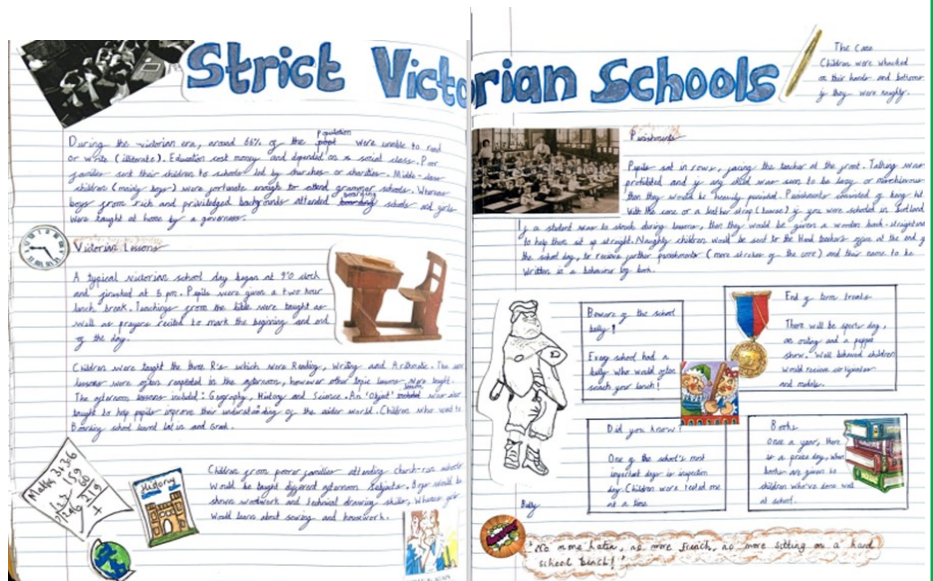 Strict Victorian Schools
During the victorian era, around 66% of the Population were unable to read
or write (illiterate). Education cost money and depended on social class. Poor
families sent their children to schools led by churches or charities. Middle-class
children (mainly boys) were fortunate enough to attend grammar schools. Whereas
boys from rich and priviledged backgrounds attended boarding schools and girls
were taught at home by a governess.
Victorian Lessons
A typical victorian school day began at 9 o'clock
and finished at 5 pm. Pupils were given a two hour
lunch break. Teachings from the bible were taught as
well as prayers recited to mark the beginning and end
of the day.
Children were taught the three R's which were Reading, writing and Arithmetic. The
lessons were often repeated in the afternoon, however other topic lessons were taught.
The afternoon lessons included: Geography, History and Science. An 'Object' lesson was also
taught to help pupils improve their understanding of the wider world. Children who went to
Boarding school learnt Latin and Greek.
Children from poorer families attending church-run schools
would be taught different afternoon subjects. Boys would be
shown woodwork and technical drawing skills, whereas girls
would learn about sewing and housework.
Maths
History
The Cane
Children were whacked
on their hands and bottoms
if they were naughty.
Punishments
Pupils sat in rows, facing the teacher at the front. Talking was
prohibited and if any child was seen to be lazy or mischievous
then they would be heavily punished. Punishments consisted of being hit
with the cone or a leather strap (tawse) if you were schooled in Scotland
If a student was to slouch during lessons, then they would be given a wooden back-straightener
to help them sit up straight. Naughty children would be sent to the Head teacher's office at the end of
the school day, to receive further punishments (more strokes of the cane) and their name to be
written in a behaviour log book.
Beware of the school
bully!
Every school had a
bully who would often
snach your lunch!
End of term treats
There will be sports day,
an outing and a puppet
show. Well behaved children
would receive certificates
and medals.
Did you know?
One of the school's most
important days is inspection
day. Children were tested one
at a time.
Books
Once a year, there
is a prize day, when
books are given to
children who've done well
at school.
Bully
'No more Latin, no more French, no more sitting on a hard
school bench!'